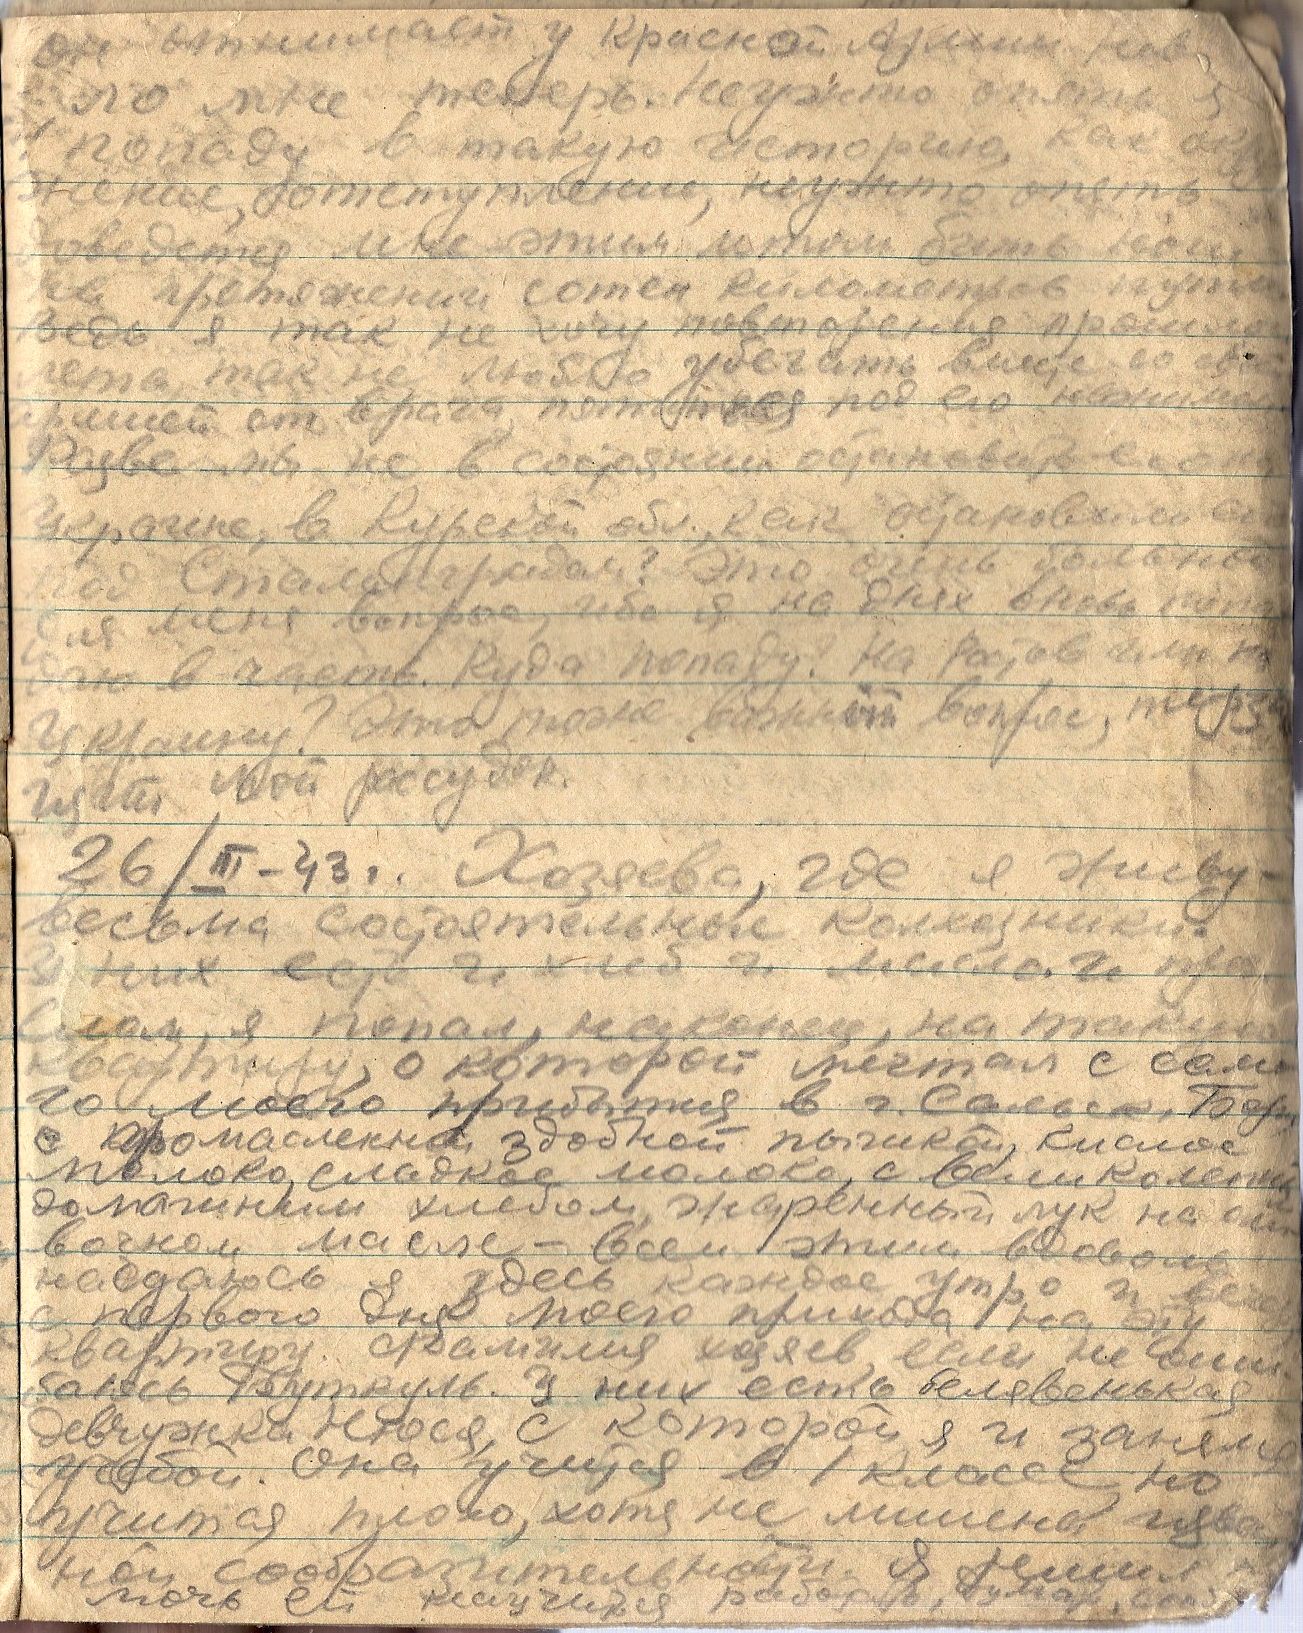 он отнимает у Красной Армии. Нев
ло мне теперь. Неужто опять я
попаду в такую историю, как окр
жение, отступление, неужто опять
доведется мне этим летом быть
на протяжении сотен километров пути
ведь я так не хочу повторения прошлого
лета, так не люблю убегать вместе со св
армией от врага, пятиться под его нажимом
Разве мы не в состоянии остановить его на
Украине, в Курской обл., как остановили его
под Сталинградом? Это очень больной
для меня вопрос, ибо я на днях вновь попа
даю в часть. Куда попаду? На Ростов или на
Украину? Это тоже важный вопрос, терза
ющий мой рассудок.
26/III-43 г. Хозяева, где я живу -
весьма состоятельные колхозники.
У них есть и хлеб и масло и пр.
Словом, я попал, наконец, на такую
квартиру, о которой мечтал с само
го моего прибытия в г. Сальск. Борщ
с промасленной здобной пышкой, кислое
молоко, сладкое молоко, с великолепным
домашним хлебом, жаренный лук на сли
вочном масле - всем этим вдоволь
наедаюсь я здесь каждое утро и веч
с первого дня моего прихода на эту
квартиру. Фамилия хозяев, если не оши
баюсь Буткуль. У них есть белявенькая
девчужка Нюся, с которой я и занялся
учебой. Она учится в 1 классе, но
учится плохо, хотя не лишена
ной сообразительности. Я решил
мочь ей научиться работать,